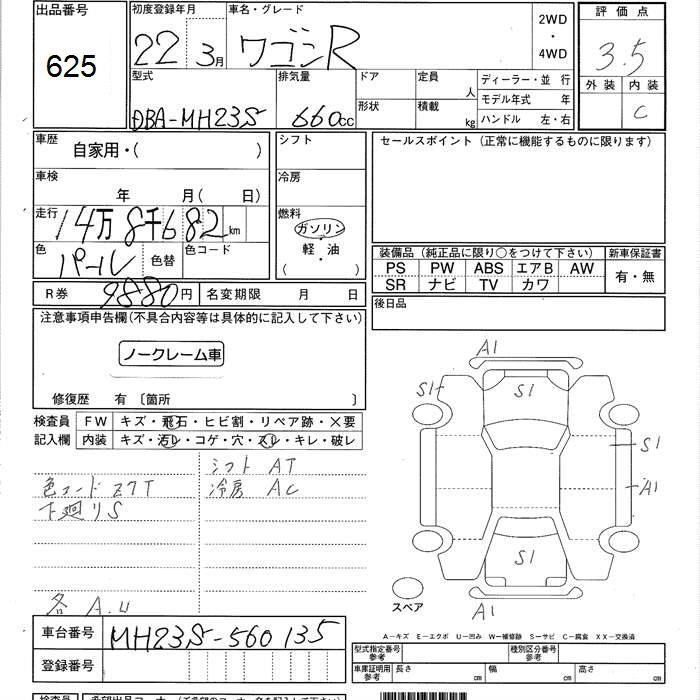 出品番号
625
初度登録年月
22 3月
車名・グレード
ワゴンR
2WD
・
4WD
評価点
3.5
外装 内装
C
型式
DBA-MH23S
排気量
660cc
ドア
形状
定員
人
積載
kg
ディーラー・並 行
モデル年式 年
ハンドル 左・右
車歴
自家用・( )
シフト
セールスポイント (正常に機能するものに限ります)
車検
年 月( 日)
冷房
走行
14万8千682km
燃料
ガソリン
・
軽・油
( )
色
パール
色替
色コード
装備品 (純正品に限り○をつけて下さい)
新車保証書
PS PW ABS エアB AW
SR ナビ TV カワ
有・無
R券
9880円
名変期限 月 日
後日品
注意事項申告欄(不具合内容等は具体的に記入して下さい)
ノークレーム車
修復歴 有 〔箇所 〕
検査員
記入欄
FW キズ・飛石・ヒビ割・リペア跡・×要
内装 キズ・汚レ・コゲ・穴・スレ・キレ・破レ
シフト AT
色コード Z7T
冷房 AC
下廻りS
各 A.U
A1
S1
S1
S1
A1
S1
A1
スペア
車台番号
MH23S-560135
登録番号
A-キズ E-エクボ U-凹み W-補修跡 S-サビ C-腐食 XX-交換済
型式指定番号
参考
種別区分番号
参考
車庫証明用
参考
長さ cm
幅 cm
高さ cm